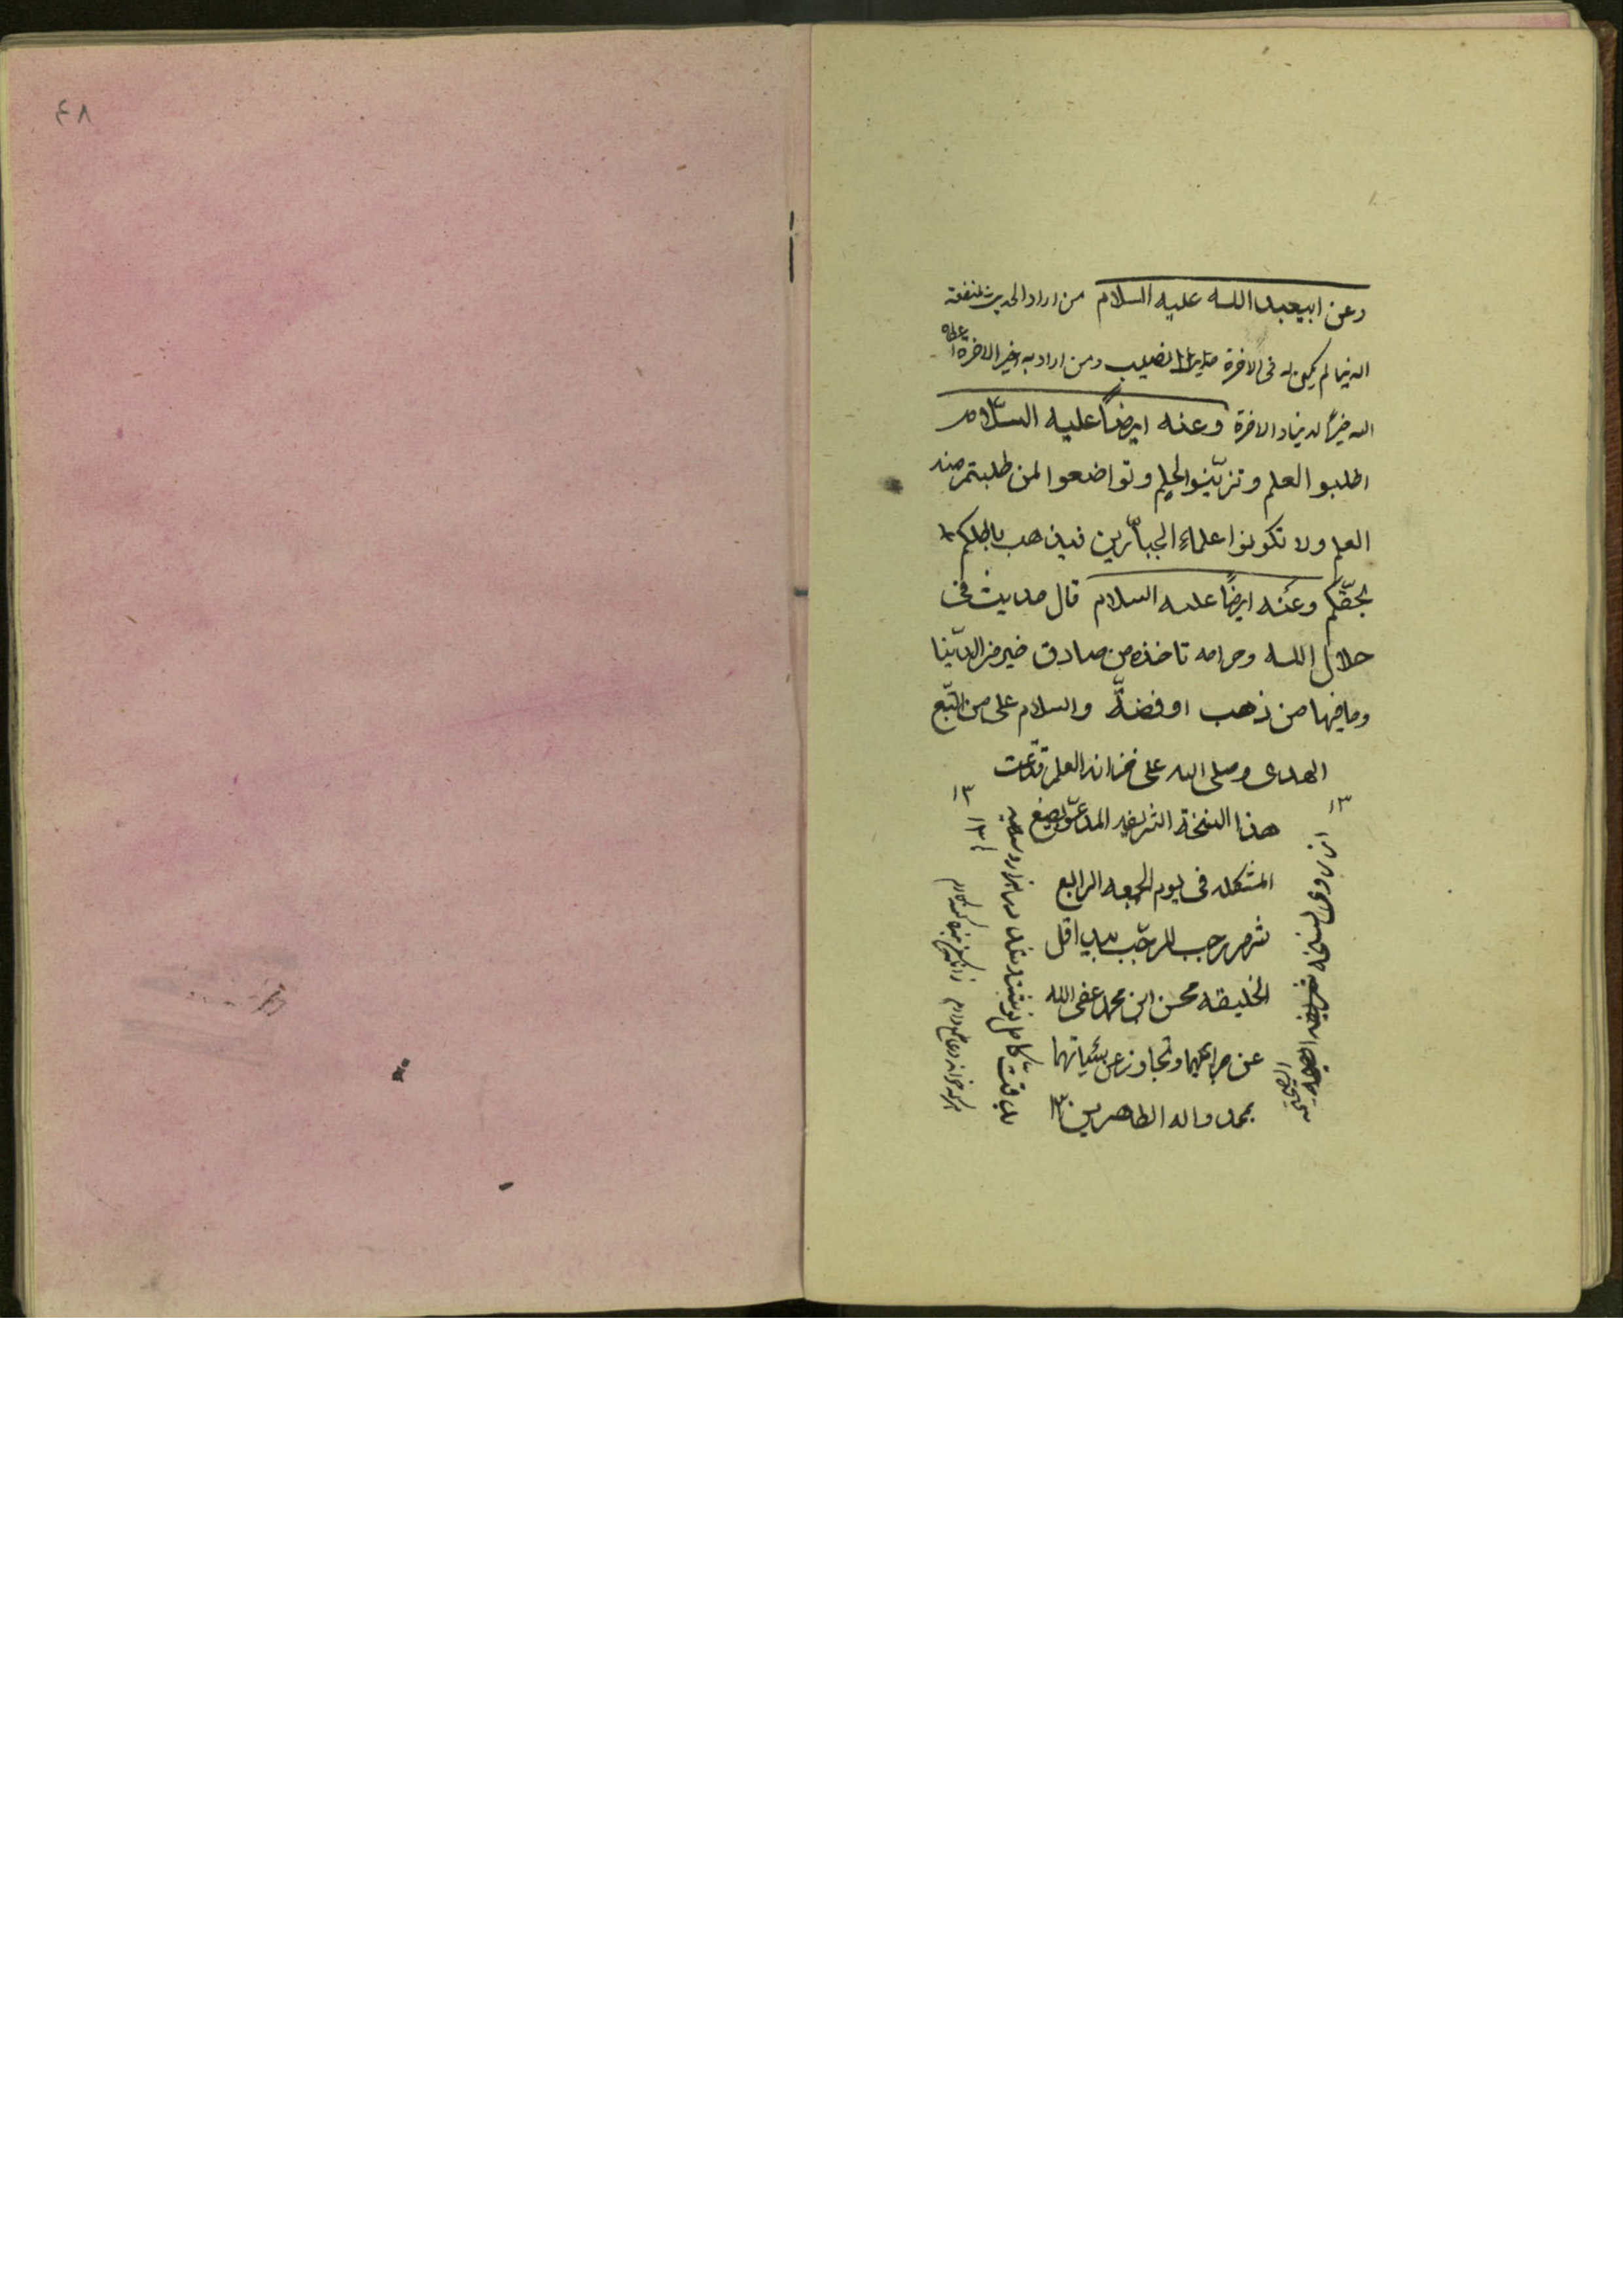 ٤٨
وعن ابيعبد الله عليه السلام من اراد الحديث لمنفعة
الدنيا لم يكن له فى الاخرة نصيب ومن اراد به خير الاخرة اعطاه
الله خير الدنيا والاخرة وعنه ايضاً عليه السلام
اطلبو العلم وتزيّنوا بالحلم وتواضعوا لمن طلبتم منه
العلم ولا تكونوا علماء الجبّارين فيذهب باطلكم
بحقّكم وعنه ايضاً عليه السلام قال حديث فى
حلال الله وحرامه تاخذه من صادق خير من الدّنيا
وما فيها من ذهب او فضةّ والسلام على من اتّبع
الهدى وصلى الله على خزانه العلم قد تمت
هذا النسخة الشريفه المدعوّ
المشكله فى يوم الجمعه الرابع
شهر رجب المرجّب بيد اقل
الخليقه محسن ابن محمد عفى الله
عن جرائمهما وتجاوز عن سيئاتهما
بمحمد واله الطاهرين
از روى نسخه شريفه
الصحيحه
بدقت كامل نوشته شد
١٣
١٣
هركه خواند دعا طمع دارم
زانكه من بنده گنه كارم